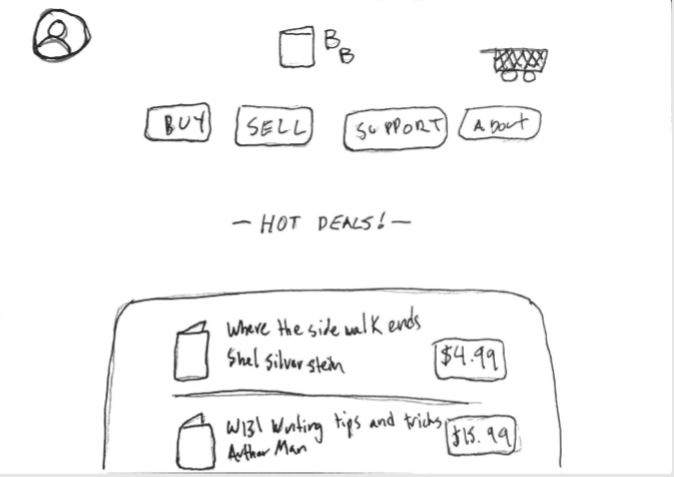 B
B
BUY SELL SUPPORT About
- HOT DEALS! -
Where the side walk ends
Shel Silver stein
$4.99
W131 Writing tips and tricks
Author Man
$15.99